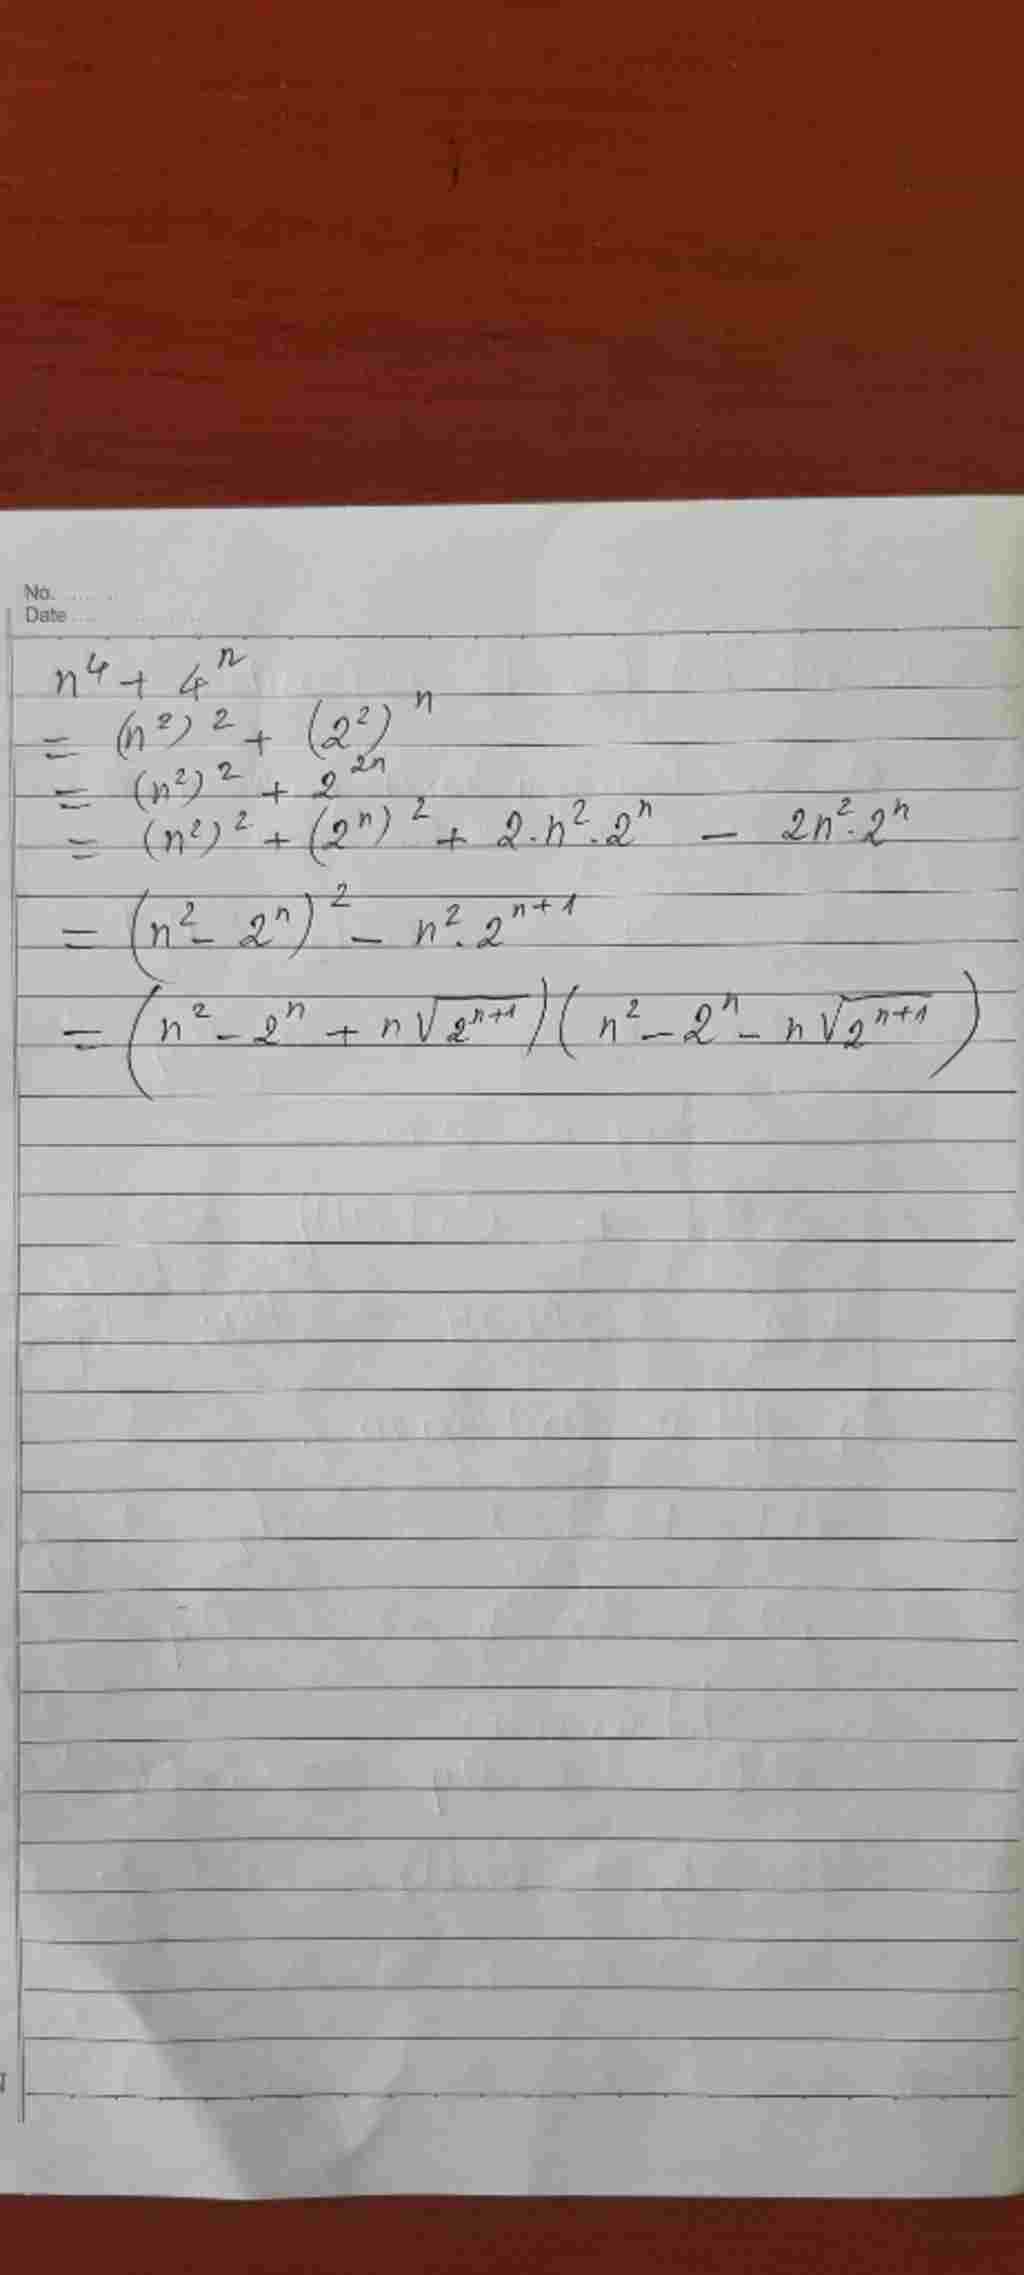 No. ........
Date ....................
n⁴ + 4ⁿ
= (n²)² + (2²)ⁿ
= (n²)² + 2²ⁿ
= (n²)² + (2ⁿ)² + 2.n².2ⁿ - 2n².2ⁿ
= (n² - 2ⁿ)² - n².2ⁿ⁺¹
= (n² - 2ⁿ + n√(2ⁿ⁺¹))(n² - 2ⁿ - n√(2ⁿ⁺¹))